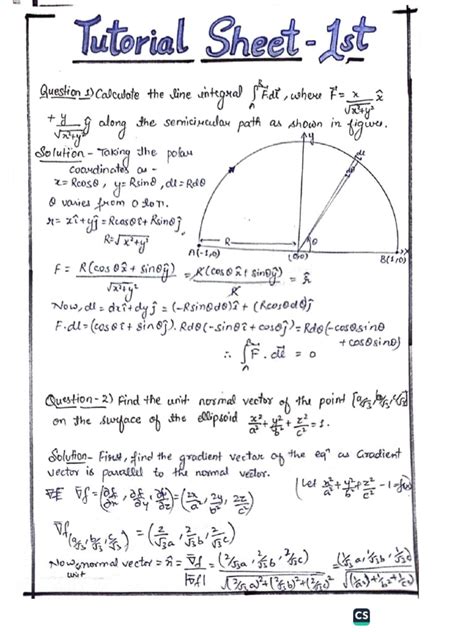 Tutorial Sheet - 1st
Question 1) Calculate the line integral ∫_A^B F⃗.dl⃗, where F⃗ = x/√(x²+y²) x̂
+ y/√(x²+y²) ŷ along the semicircular path as shown in figure.
Solution - Taking the polar
coordinates as -
x = Rcosθ, y = Rsinθ, dl = Rdθ
θ varies from 0 to π.
r = xî + yĵ = Rcosθî + Rsinθĵ
R = √(x²+y²)
y
dl
dθ
θ
R
A(-1,0)
(0,0)
B(1,0)
x
F = R(cosθ x̂ + sinθ ŷ)/√(x²+y²) = R(cosθ x̂ + sinθ ŷ)/R = r̂
Now, dl = dxî + dyĵ = (-Rsinθdθ)î + (Rcosθdθ)ĵ
F.dl = (cosθî + sinθĵ). Rdθ(-sinθî + cosθĵ) = Rdθ(-cosθsinθ
+ cosθsinθ)
∴ ∫_A^B F⃗. dl⃗ = 0
Question - 2) Find the unit normal vector of the point [a/√3, b/√3, c/√3]
on the surface of the ellipsoid x²/a² + y²/b² + z²/c² = 1.
Solution - First, find the gradient vector of the eqⁿ as Gradient
vector is parallel to the normal vector.
∇f = (∂f/∂x, ∂f/∂y, ∂f/∂z) = (2x/a², 2y/b², 2z/c²)
(Let x²/a² + y²/b² + z²/c² - 1 = f(x))
∇f(a/√3, b/√3, c/√3) = (2/√3a, 2/√3b, 2/√3c)
Now, unit normal vector = n̂ = ∇f/|∇f| = (2/√3a, 2/√3b, 2/√3c)/√((2/√3a)²+(2/√3b)²+(2/√3c)²) = (1/√3a, 1/√3b, 1/√3c)
CS